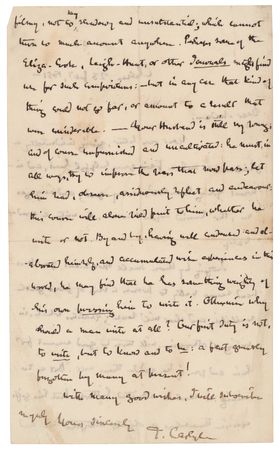 my
filmy, not to, shadowy and unsubstantial; which cannot
turn to much account anywhere. Perhaps some of the
Eliza-Cook, Leigh-Hunt, or other Journals might find
use for such compositions:—but in any case that kind of
thing could not go far; or amount to a result that
was considerable. —— Your Husband is still very young;
and of course unfurnished and uncultivated: he must, in
all ways, try to improve the years that now pass; let
him read, observe, assiduously reflect and endeavour:
this course will alone yield fruit to him, whether he
write or not. By and by, having well endured and el-
aborated himself, and accumulated wise experiences in this
world, he may find that he has something weighty of
his own pressing him to write it. Otherwise why
should a man write at all? Our first duty is not,
to write, but to know and to be: a fact greatly
forgotten by many at present!
With many good wishes, I will subscribe
myself Yours sincerely
T. Carlyle